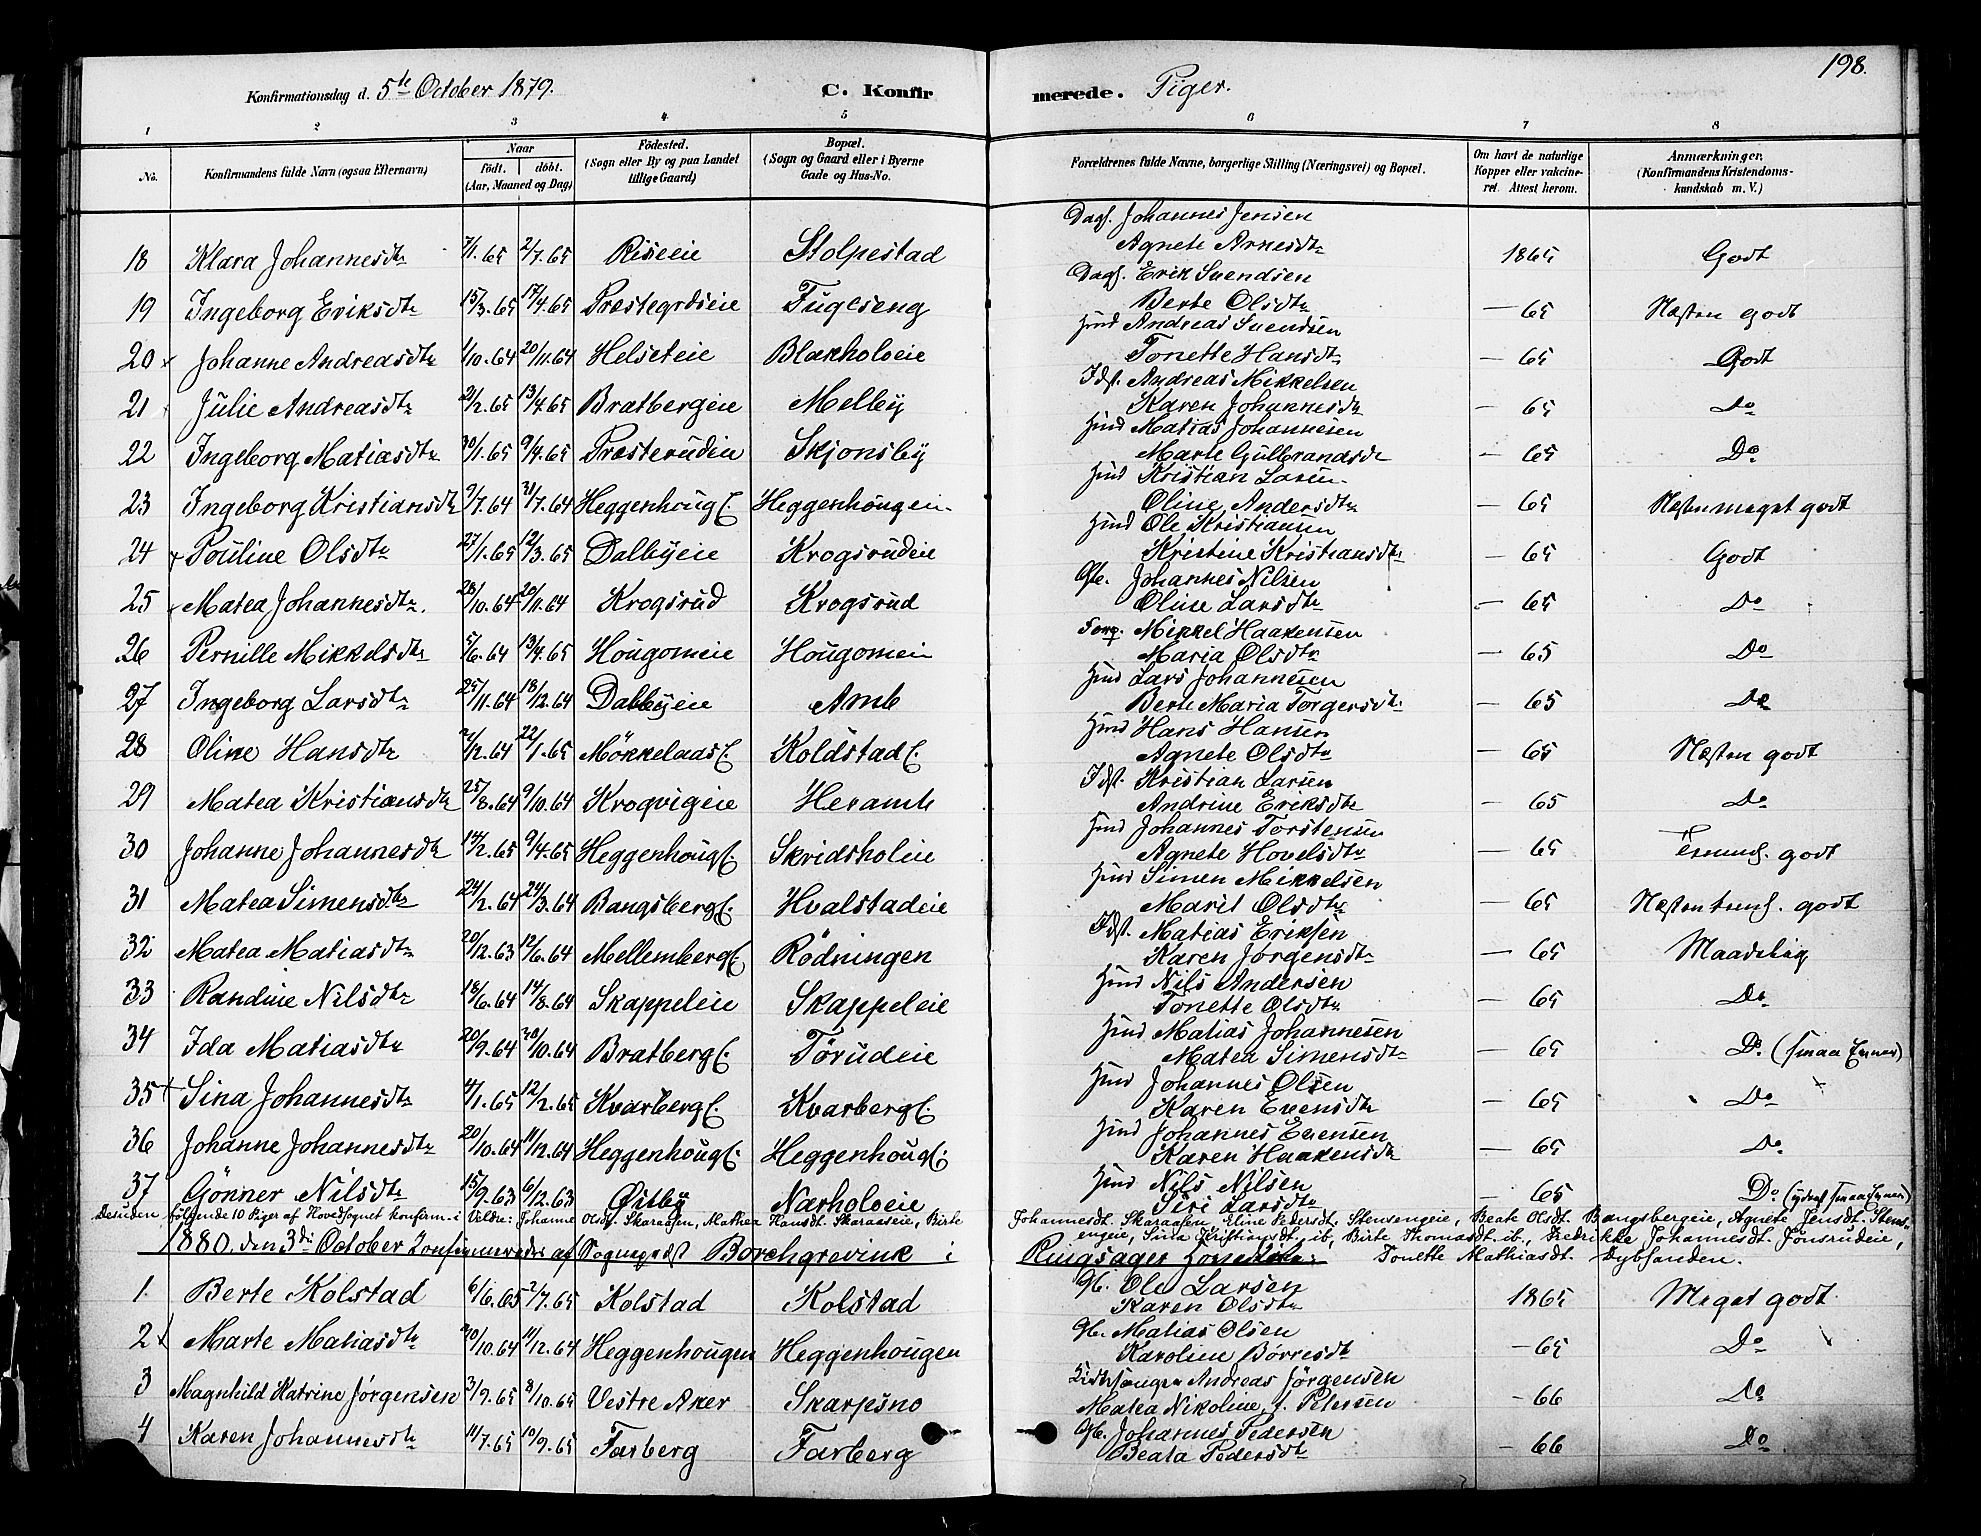 198.
Konfirmationsdag d. 5te October 1879. C. Konfirmerede. Piger.
1 2 3 4 5 6 7 8
No. Konfirmandens fulde Navn (ogsaa Efternavn) Naar födt. döbt. (Aar, Maaned og Dag) Födested. (Sogn eller By og paa Landet tillige Gaard) Bopæl. (Sogn og Gaard eller i Byerne Gade og Hus-No. Forældrenes fulde Navne, borgerlige Stilling (Næringsvei) og Bopæl. Om havt de naturlige Kopper eller vakcineret. Attest herom. Anmærkninger. (Konfirmandens Kristendomskundskab m. V.)
18 Klara Johannesdtr 7/1.65 2/7.65 Riseeie Stolpestad Dagl. Johannes Jensen Agnete Arnesdtr 1865 Godt
19 Ingeborg Eriksdtr 15/3.65 17/4.65 Præstegrdseie Fuglseng Dagl. Erik Svendsen Berte Olsdtr — 65 Næsten godt
20 Johanne Andreasdtr 1/10.64 20/11.64 Helseteie Blakholveie Husd Andreas Svendsen Tonette Hansdtr — 65 Godt
21 Julie Andreasdtr 21/2.65 13/4.65 Bratbergeie Melby Idst. Andreas Mikkelsen Karen Johannesdtr — 65 Do
22 Ingeborg Matiasdtr 30/1.65 9/4.65 Præsterudeie Skjønsby Husd Matias Johannesen Marte Gulbrandsdtr — 65 Do
23 Ingeborg Kristiansdtr 9/7.64 31/7.64 Heggenhougl. Heggenhougen Husd Kristian Larsen Oline Andersdtr — 65 Næsten meget godt
24 Pouline Olsdtr 27/1.65 12/3.65 Dalbyeie Krogsrudeie Husd Ole Kristiansen Kristine Kristiansdtr — 65 Godt
25 Matea Johannesdtr. 28/10.64 20/11.64 Krogsrud Krogsrud Gbr. Johannes Nilsen Oline Larsdtr — 65 Do
26 Pernille Mikkelsdtr 5/6.64 13/4.65 Hougomeie Hougomeie Forp. Mikkel Haakensen Maria Olsdtr — 65 Do
27 Ingeborg Larsdtr 25/11.64 18/12.64 Dalbyeie Amb Husd Lars Johannesen Berte Maria Torgersdtr — 65 Do
28 Oline Hansdtr 2/12.64 22/1.65 Mökkelaasl. Koldstadl. Husd Hans Hansen Agnete Olsdtr — 65 Næsten godt
29 Matea Kristiansdtr 25/8.64 9/10.64 Krogvigeie Heramb Idst. Kristian Larsen Andrine Eriksdtr — 65 Do
30 Johanne Johannesdtr 14/2.65 9/4.65 Heggenhougl. Skridsholeie Husd Johannes Torstensen Agnete Hovelsdtr — 65 Temml. godt
31 Matea Simensdtr 24/2.64 24/3.64 Bangsbergl. Hvalstadeie Husd Simen Mikkelsen Marit Olsdtr — 65 Næsten teml. godt
32 Matea Matiasdtr 20/12.63 12/6.64 Mellembergl. Rödningen Idst. Matias Eriksen Karen Jørgensdtr — 65 Maadelig
33 Randine Nilsdtr 18/6.64 14/8.64 Skappeleie Skappeleie Husd Nils Andersen Tonette Olsdtr — 65 Do
34 Ida Matiasdtr 20/9.64 30/10.64 Bratbergl. Torudeie Husd Matias Johannesen Matea Simensdtr — 65 Do. (smaa Evner)
35 Sina Johannesdtr 4/1.65 12/2.65 Kvarbergl. Kvarbergl. Husd Johannes Olsen Karen Evensdtr — 65 Do
36 Johanne Johannesdtr 20/10.64 11/12.64 Heggenhougl. Heggenhougl. Husd Johannes Evensen Karen Haakensdtr — 65 Do
37 Gönner Nilsdtr 15/9.63 6/12.63 Østby Nærholveie Husd Nils Nilsen Siri Larsdtr — 65 Do (yderst smaa Evner)
Desuden følgende 10 Piger af Hovedsognet konfirm. i Veldre: Johanne Olsdt. Skaraasen, Mathea Hansdt. Skaraaseie, Birte Johannesdt. Skaraasen, Eline Pedersdt. Stensengeie, Beate Olsdt. Bangsbergeie, Agnete Jensdt. Stensengeie, Sina Kristiansdt. ib., Birte Thomasdt. ib., Fredrikke Johannesdt. Jönsrudeie, Tonette Mathiasdt. Dybsanden.
1880. den 3die October Konfirmerede af Sogneprest Borchgrevink i Ringsager Hovedkirke:
1. Berte Kolstad 6/6.65 2/7.65 Kolstad Kolstad Gbr. Ole Larsen Karen Olsdtr 1865 Meget godt
2 Marte Matiasdtr 20/10.64 11/12.64 Heggenhougen Heggenhougen Gbr. Matias Olsen Karoline Börresdtr — 65 Do
3 Magnhild Katrine Jørgensen 3/9.65 8/10.65 Vestre Aker Skarpsno Kirkesanger Andreas Jörgensen Matea Nikoline, f. Petersen — 66 Do
4 Karen Johannesdtr 11/7.65 10/9.65 Farberg Farberg Gbr. Johannes Pedersen Beata Pedersdtr — 66 Do